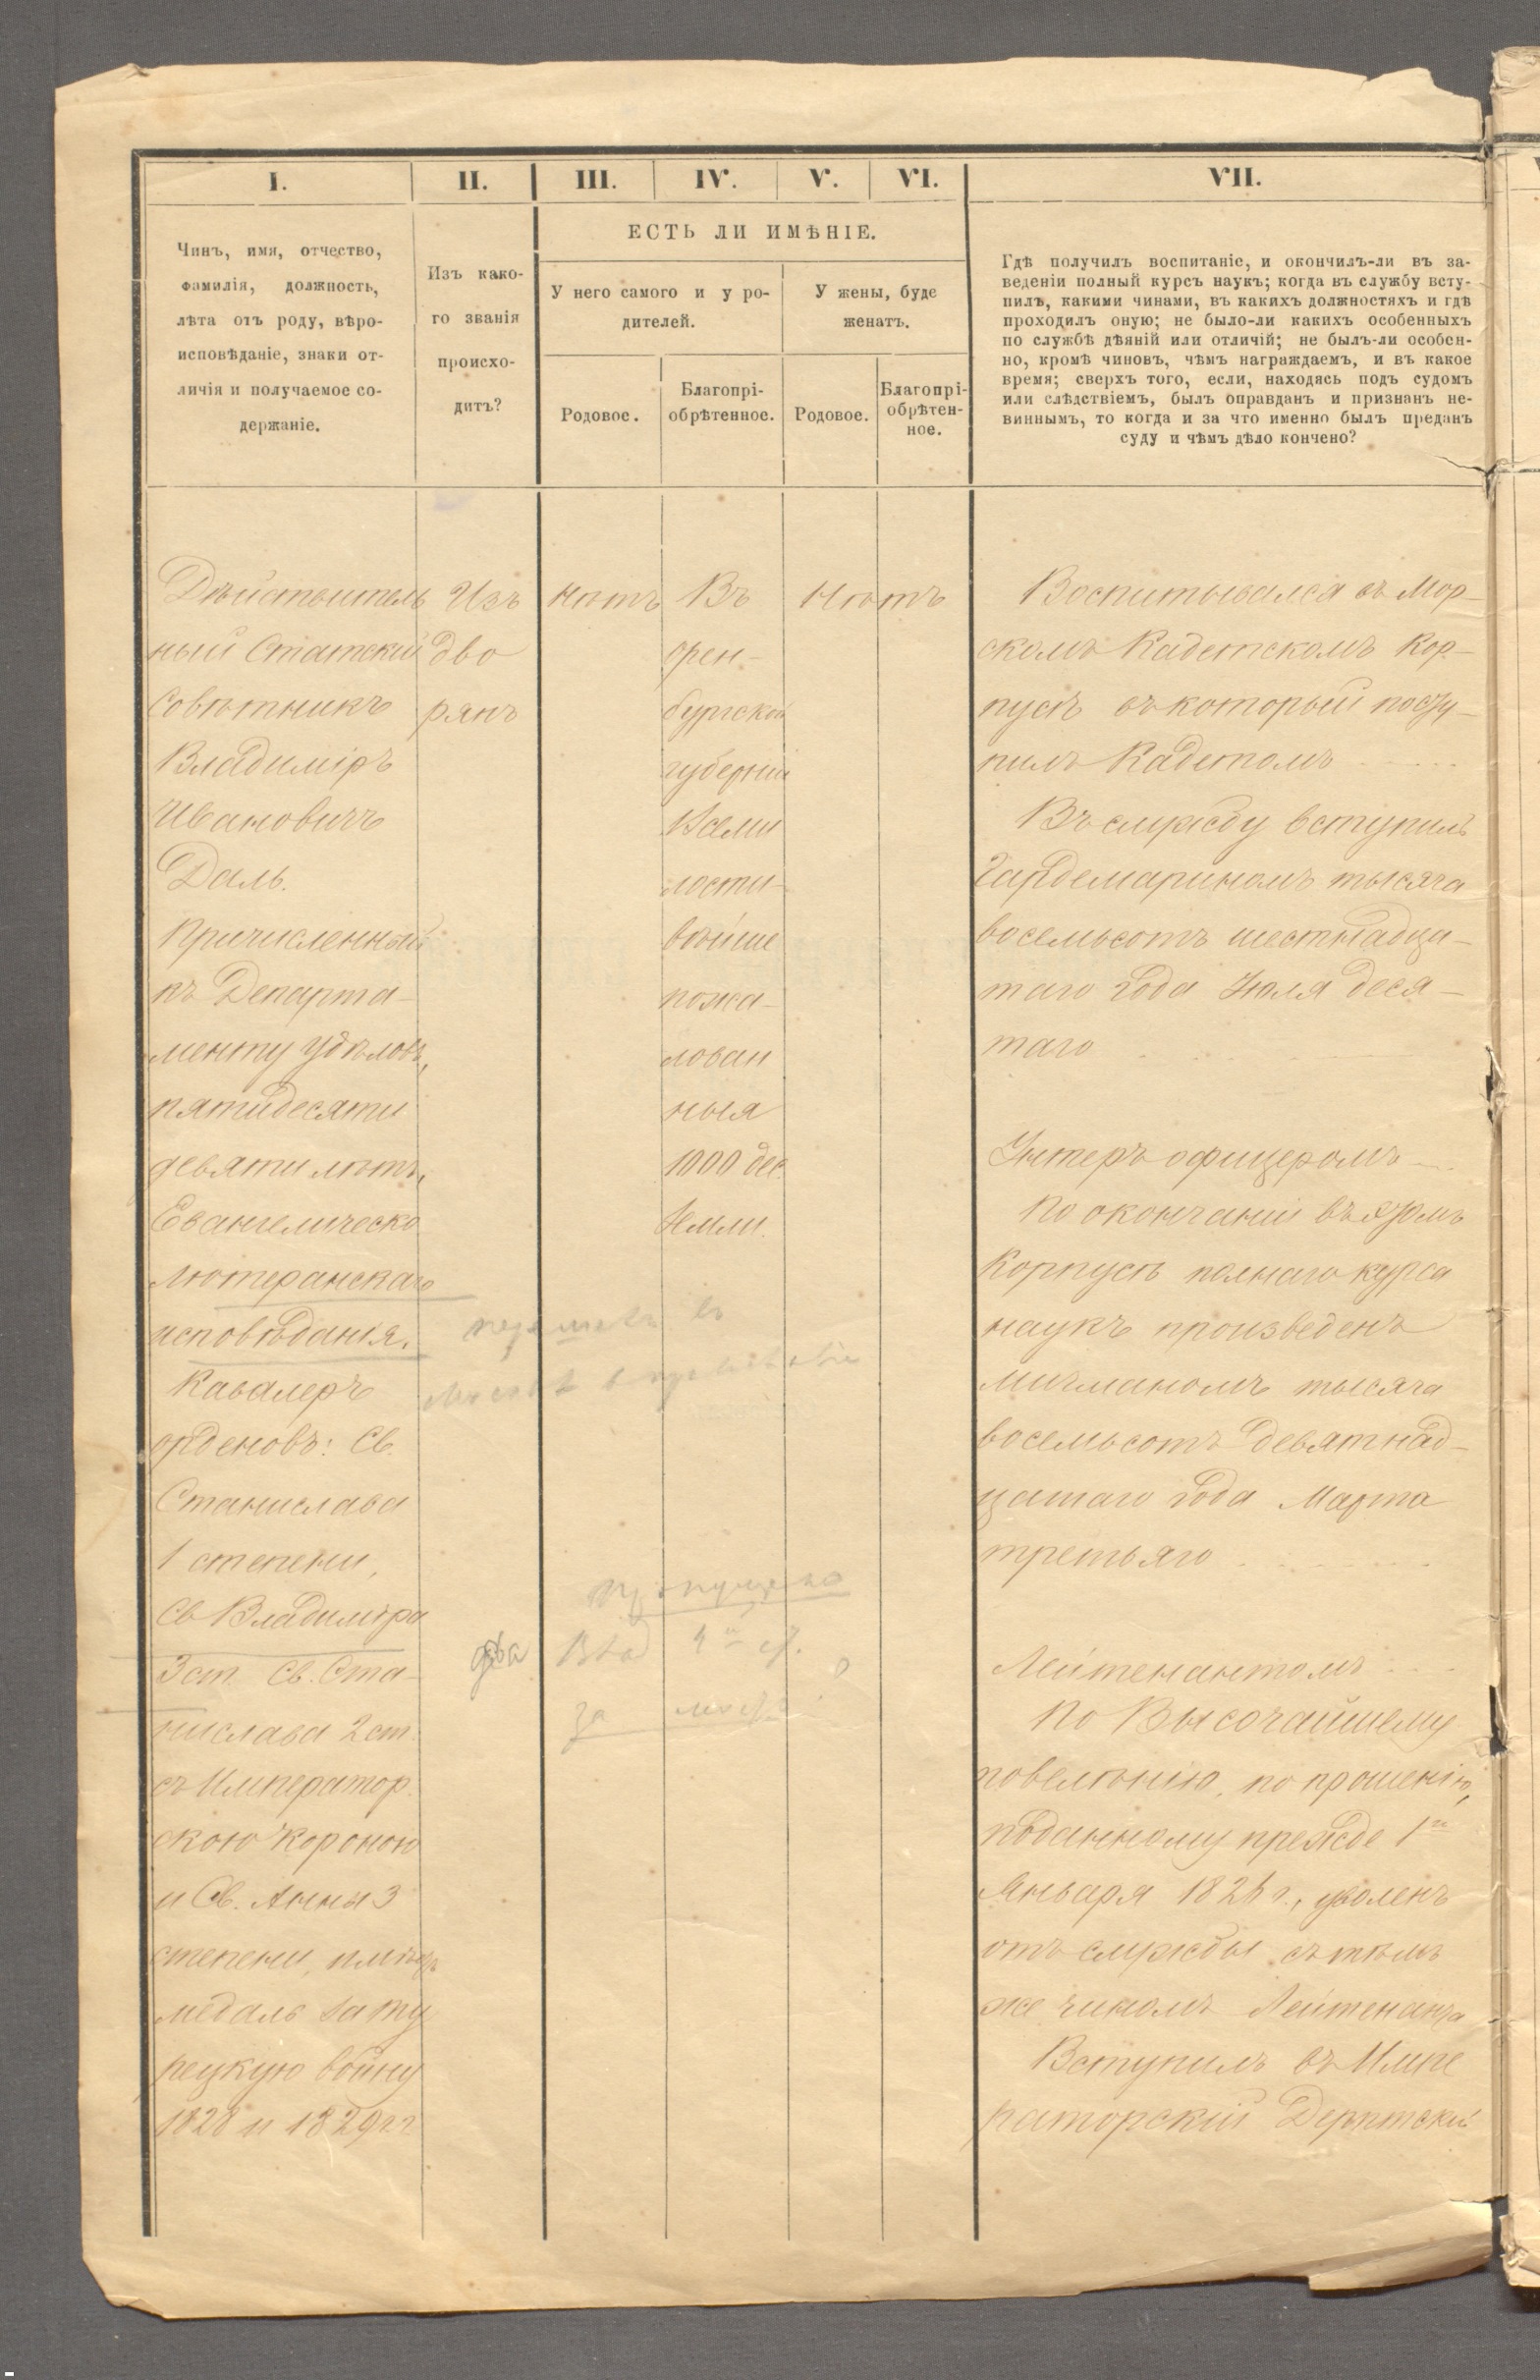 I.
II.
III.
IV.
V.
VI.
VII.
Чинъ, имя, отчество,
фамилія, должность,
лѣта отъ роду, вѣро-
исповѣданіе, знаки от-
личія и получаемое со-
держаніе.
Изъ како-
го званія
происхо-
дитъ?
ЕСТЬ ЛИ ИМѢНІЕ.
У него самого и у ро-
дителей.
У жены, буде
женатъ.
Родовое.
Благопрі-
обрѣтенное.
Родовое.
Благопрі-
обрѣтен-
ное.
Гдѣ получилъ воспитаніе, и окончилъ-ли въ за-
веденіи полный курсъ наукъ; когда въ службу всту-
пилъ, какими чинами, въ какихъ должностяхъ и гдѣ
проходилъ оную; не было-ли какихъ особенныхъ
по службѣ дѣяній или отличій; не былъ-ли особен-
но, кромѣ чиновъ, чѣмъ награждаемъ, и въ какое
время; сверхъ того, если, находясь подъ судомъ
или слѣдствіемъ, былъ оправданъ и признанъ не-
виннымъ, то когда и за что именно былъ преданъ
суду и чѣмъ дѣло кончено?
Дѣйствитель
ный Статскій
Совѣтникъ
Владиміръ
Ивановичъ
Даль.
Причисленный
къ Департа-
менту Удѣловъ,
пятидесяти
девяти лѣтъ,
Евангелическо
лютеранскаго
исповѣданія.
Кавалеръ
орденовъ: Св.
Станислава
1 степени,
Св Владиміра
3 ст Св. Ста-
нислава 2 ст.
съ Император.
скою короною
и Св. Анны 3
степени, имѣетъ
медаль за Ту
рецкую войну
1828 и 1829 г.г.
Изъ
дво
рянъ
Нѣтъ
Въ
орен-
бургской
губерніи
Всеми
лости-
вѣйше
пожа-
лован
ныя
1000 дес.
земли.
Нѣтъ
въ
пропущено
Влад 4й ст.
за
Воспитывался въ Мор-
скомъ Кадетскомъ Кор-
пусѣ въ который посту-
пилъ Кадетомъ
Въ службу вступилъ
Гардемариномъ тысяча
восемьсотъ шестнадца-
таго года Юля деся-
таго
Унтеръ офицеромъ
По окончаніи въ этомъ
Корпусѣ полнаго курса
наукъ произведенъ
Мичманомъ тысяча
восемьсотъ девятнад-
цатаго года Марта
третьяго
Лейтенантомъ
По Высочайшему
повелѣнію, по прошенію,
поданному прежде 1го
Января 1826 г., уволенъ
отъ службы съ тѣмъ
же чиномъ Лейтенанта
Вступилъ въ Импе
раторскій Дерптскій